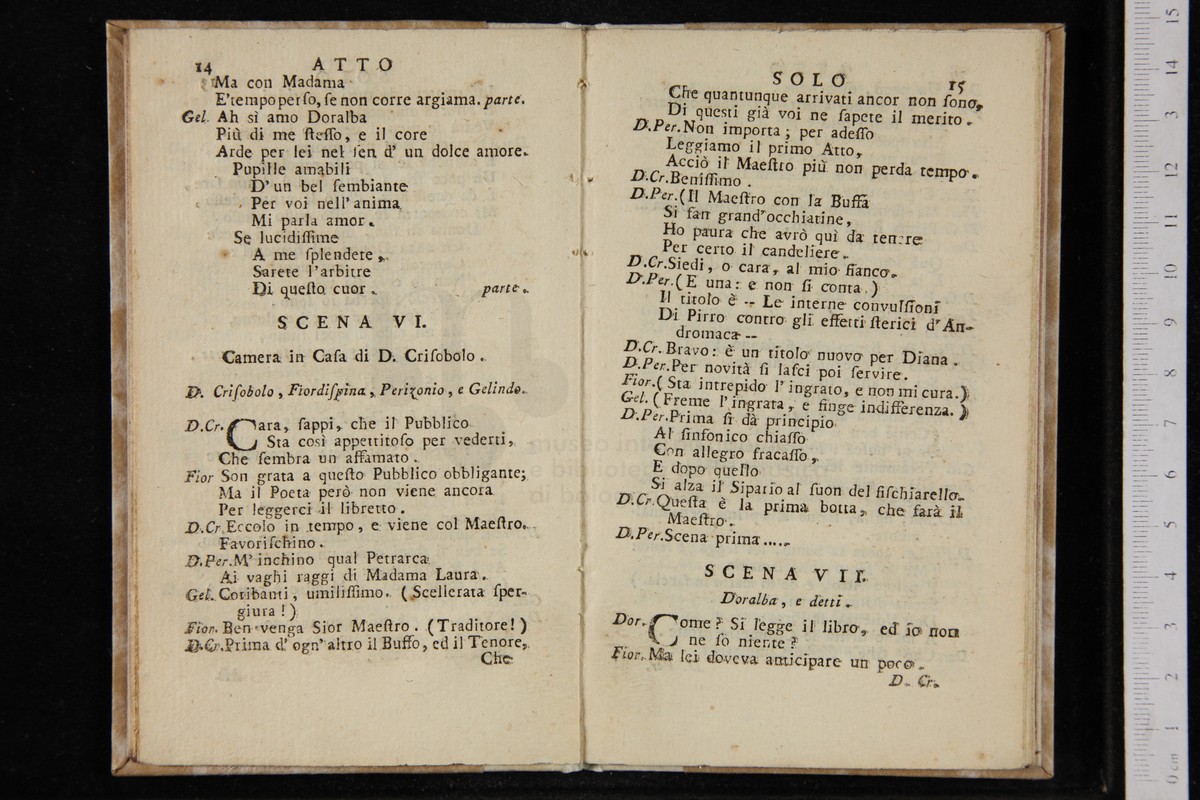 14 ATTO
Ma con Madama
E' tempo perso, se non corre argiama. parte.
Gel. Ah sì amo Doralba
Più di me ſteſſo, e il core
Arde per lei nel ſen d' un dolce amore.
Pupille amabili
D' un bel ſembiante
Per voi nell' anima
Mi parla amor.
Se lucidiſſime
A me ſplendete,
Sarete l'arbitre
Di queſto cuor. parte.
SCENA VI.
Camera in Caſa di D. Criſobolo.
D. Criſobolo, Fiordiſpina, Perizonio, e Gelindo.
D.Cr. Cara, ſappi, che il Pubblico
Sta così appettitoſo per vederti,
Che ſembra un affamato.
Fior Son grata a queſto Pubblico obbligante;
Ma il Poeta però non viene ancora
Per leggerci il libretto.
D.Cr. Eccolo in tempo, e viene col Maeſtro.
Favoriſchino.
D.Per. M' inchino qual Petrarca
Ai vaghi raggi di Madama Laura.
Gel. Coribanti, umiliſſimo. (Scellerata ſper-
giura!)
Fior. Ben venga Sior Maeſtro. (Traditore!)
D.Cr. Prima d' ogn' altro il Buffo, ed il Tenore,
Che
SOLO 15
Che quantunque arrivati ancor non ſono,
Di queſti già voi ne ſapete il merito.
D.Per. Non importa; per adeſſo
Leggiamo il primo Atto,
Acciò il Maeſtro più non perda tempo.
D.Cr. Beniſſimo.
D.Per. (Il Maeſtro con la Buffa
Si fan grand'occhiatine,
Ho paura che avrò quì da tenere
Per certo il candeliere.
D.Cr. Siedi, o cara, al mio fianco.
D.Per. (E una: e non ſi conta.)
Il titolo è -- Le interne convulſioni
Di Pirro contro gli effetti ſterici d'An-
dromaca --
D.Cr. Bravo: è un titolo nuovo per Diana.
D.Per. Per novità ſi laſci poi ſervire.
Fior. (Sta intrepido l' ingrato, e non mi cura.)
Gel. (Freme l' ingrata, e finge indifferenza.)
D.Per. Prima ſi dà principio
Al ſinfonico chiaſſo
Con allegro fracaſſo,
E dopo quello
Si alza il Sipario al ſuon del fiſchiarello.
D.Cr. Queſta è la prima botta, che farà il
Maeſtro.
D.Per. Scena prima.....
SCENA VII.
Doralba, e detti.
Dor. Come? Si legge il libro, ed io non
ne ſo niente?
Fior. Ma lei doveva anticipare un poco.
D. Cr.